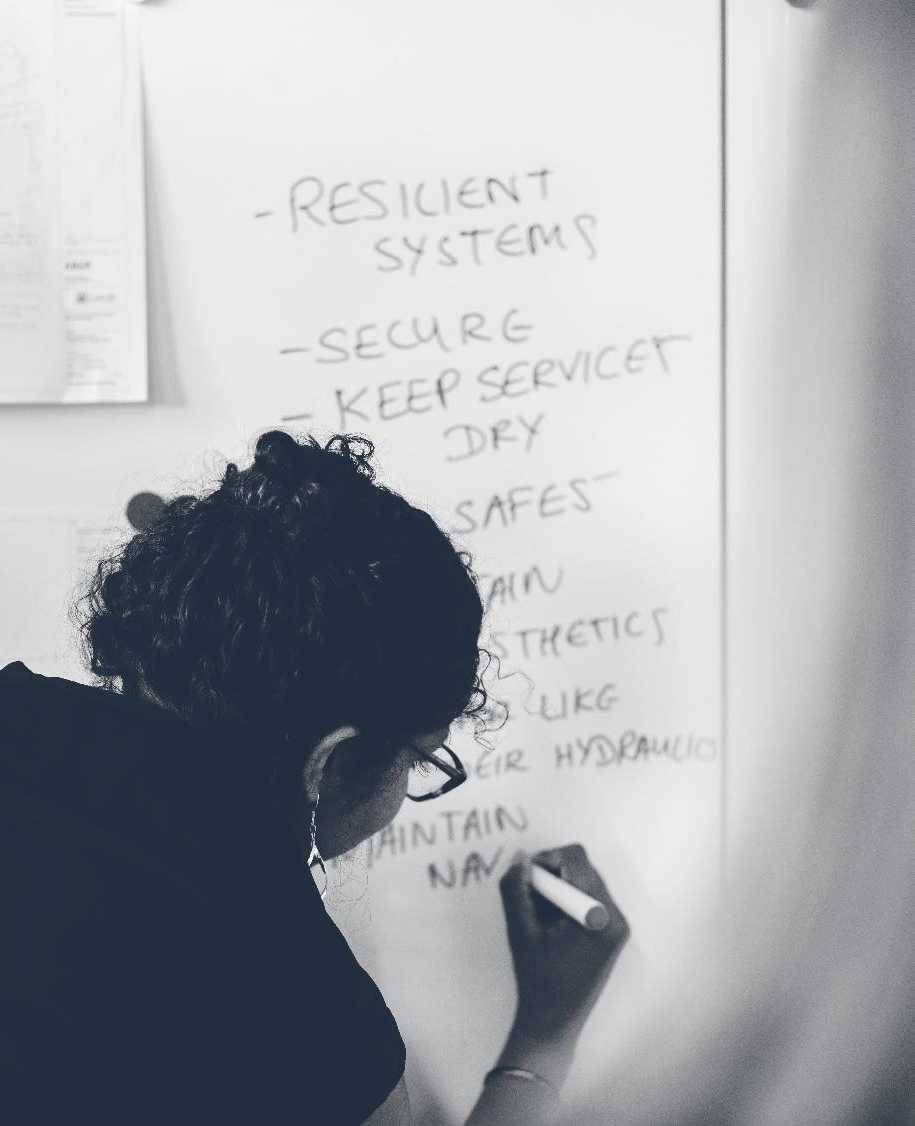 - RESILIENT
SYSTEMS
- SECURE
- KEEP SERVICET
DRY
SAFES
TAIN
STHETICS
LIKE
EIR HYDRAULICS
MAINTAIN
NAV